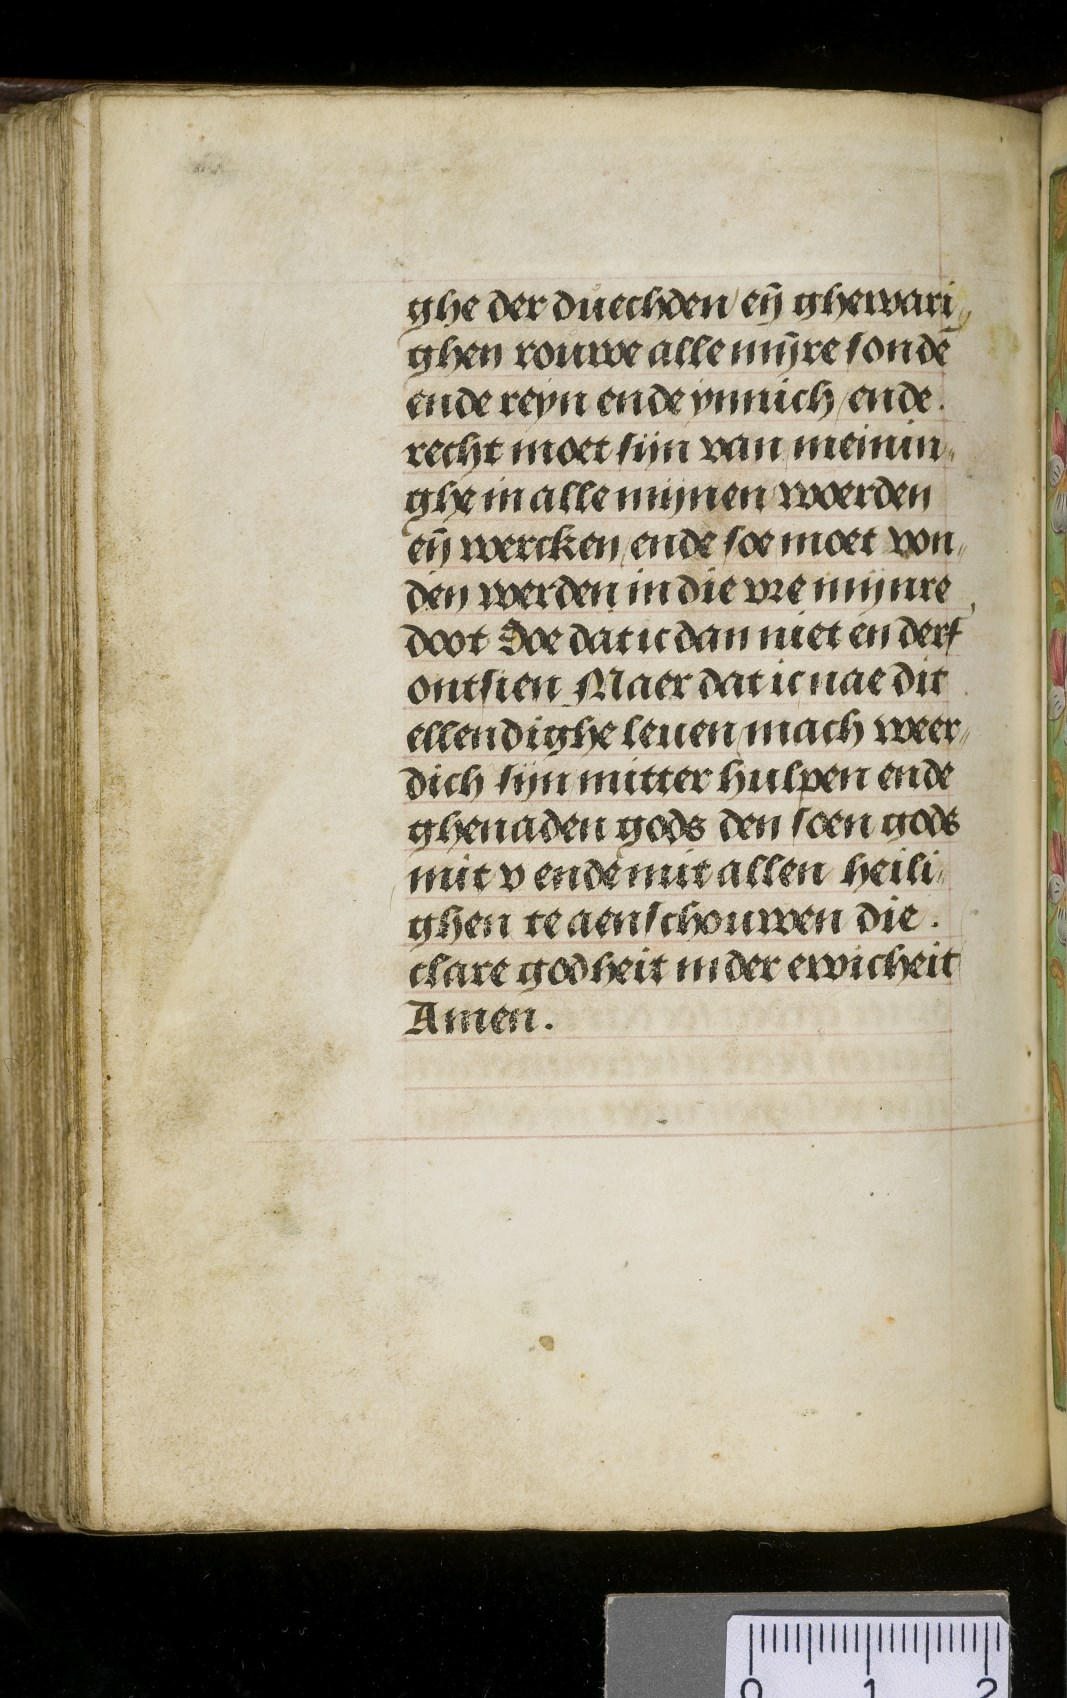 ghe der duechden / en̄ ghewari„
ghen rouwe alle mijn̄re sondē
ende reyn ende ynnich / ende.
recht moet sijn van meinin„
ghe in alle mijnen woerden
en̄ wercken / ende soe moet von„
den werden in die vre mijnre
doot Soe dat ic dan niet en derf
ontsien Maer dat ic nae dit
ellendighe leuen mach weer„
dich sijn mitter hulpen ende
ghenaden gods den soen gods
mit v ende mit allen heili„
ghen te aenschouwen die.
clare godheit in der ewicheit
Amen.
0 1 2